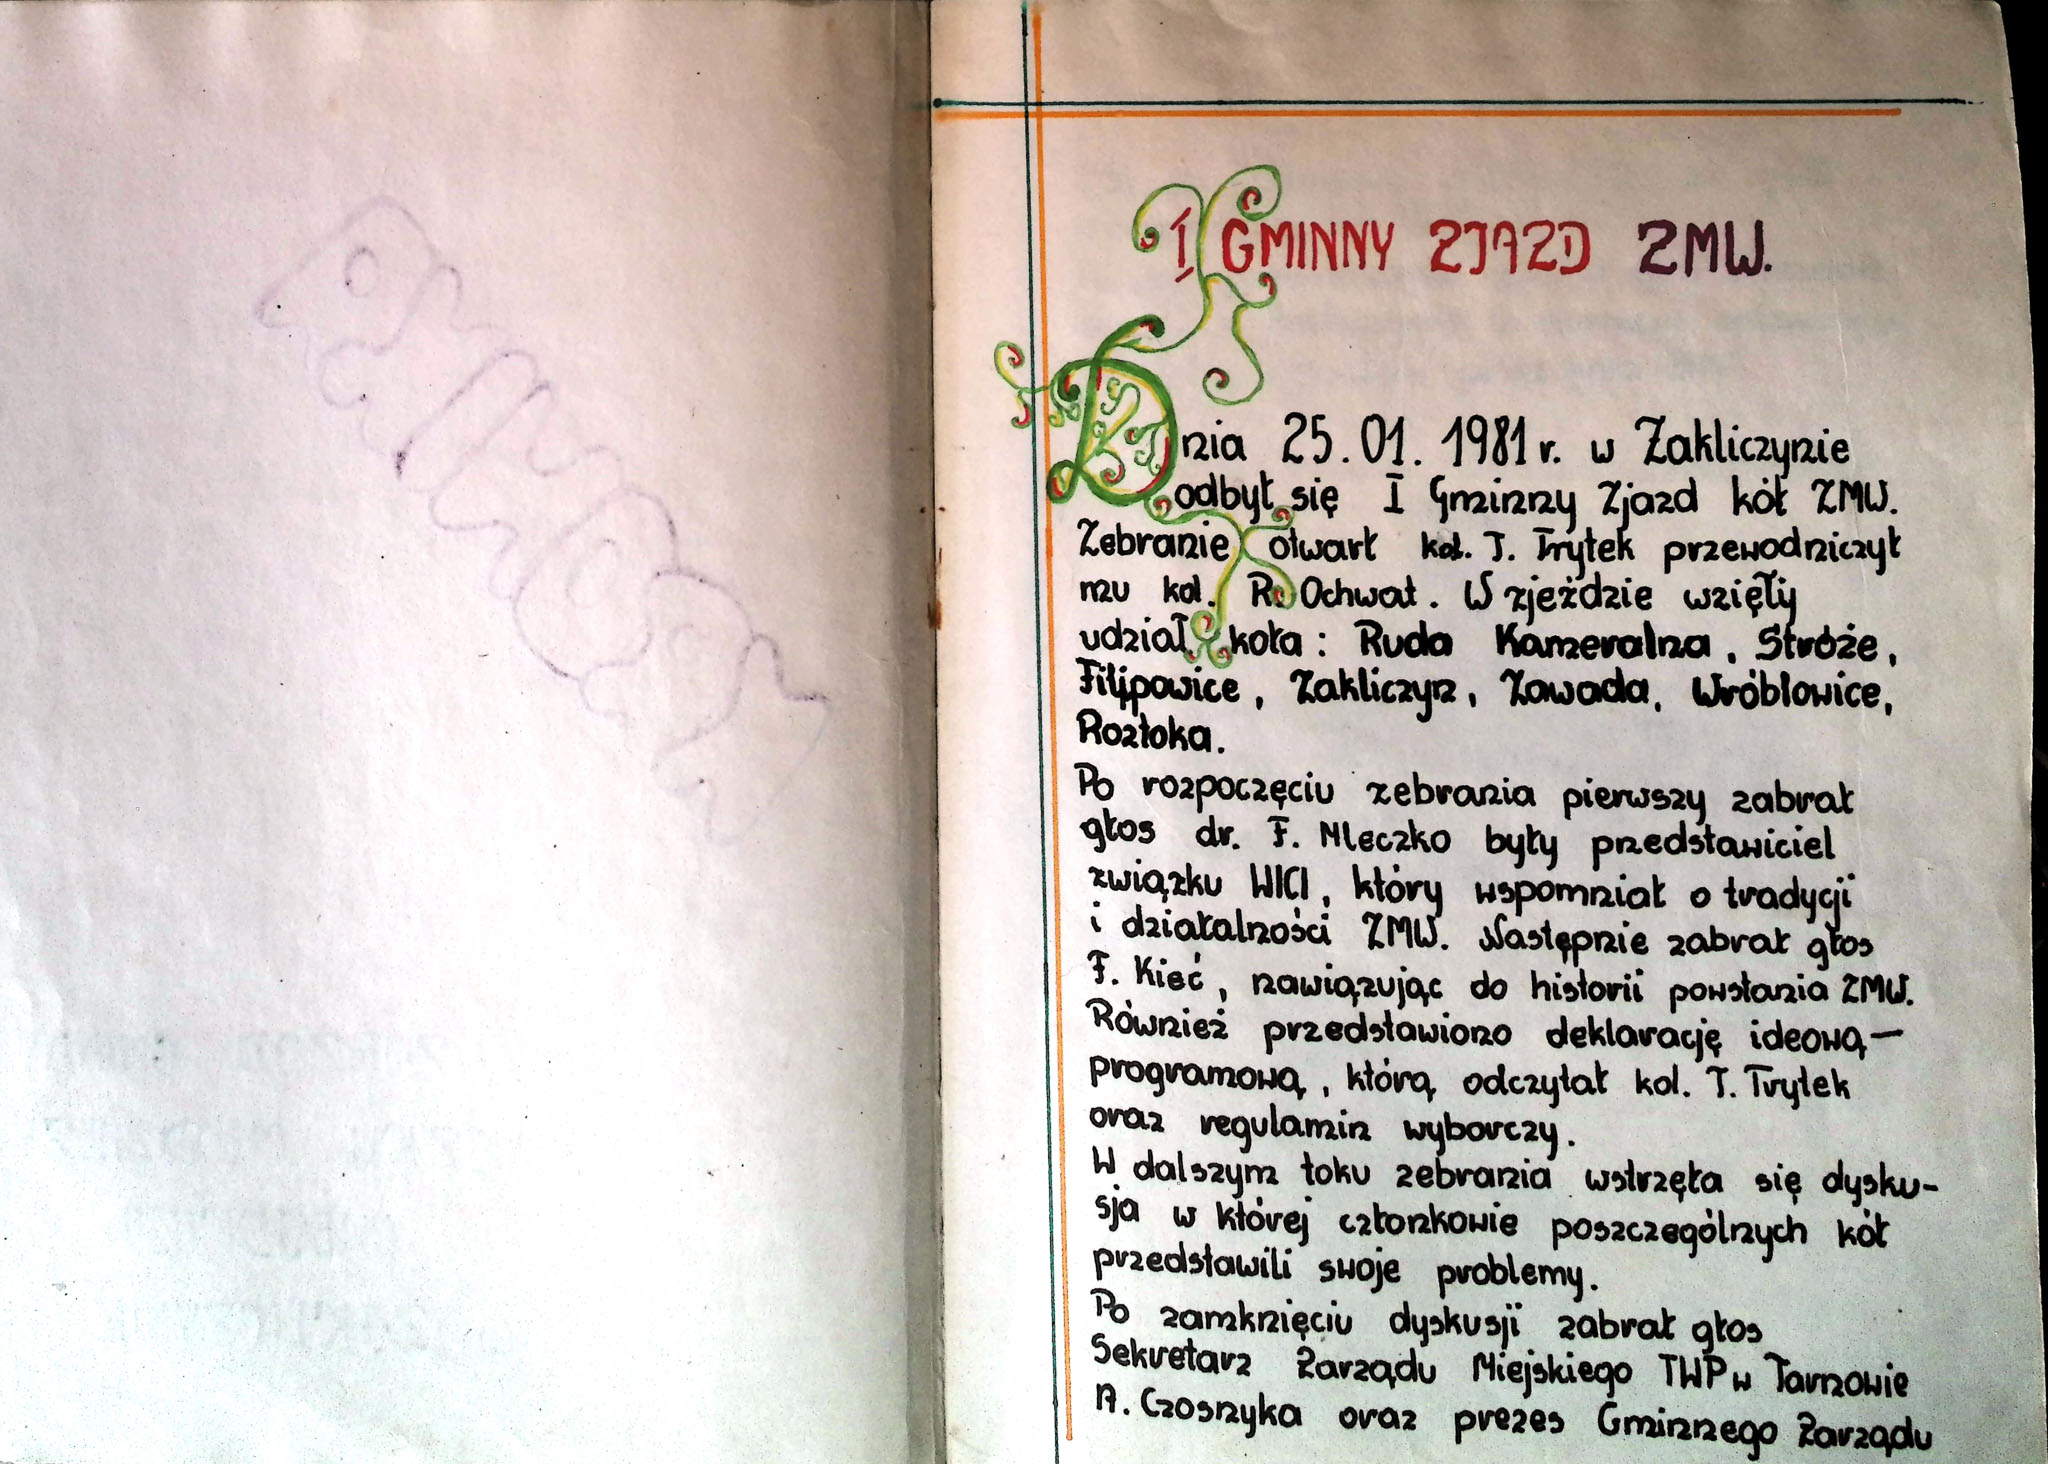 I GMINNY ZJAZD ZMW.
Dnia 25.01.1981 r. w Zakliczynie
odbył się I Gminny Zjazd kół ZMW.
Zebranie otwarł kol. J. Trytek przewodniczył
mu kol. R. Ochwat. W zjeździe wzięły
udział koła: Ruda Kameralna, Stróże,
Filipowice, Zakliczyn, Zawada, Wróblowice,
Roztoka.
Po rozpoczęciu zebrania pierwszy zabrał
głos dr. F. Mleczko były przedstawiciel
związku WICI, który wspomniał o tradycji
i działalności ZMW. Następnie zabrał głos
F. Kieć, nawiązując do historii powstania ZMW.
Również przedstawiono deklarację ideową—
programową, którą odczytał kol. J. Trytek
oraz regulamin wyborczy.
W dalszym toku zebrania wstrzęła się dysku-
sja w której członkowie poszczególnych kół
przedstawili swoje problemy.
Po zamknięciu dyskusji zabrał głos
Sekretarz Zarządu Miejskiego TWP w Tarnowie
A. Czosnyka oraz prezes Gminnego Zarządu